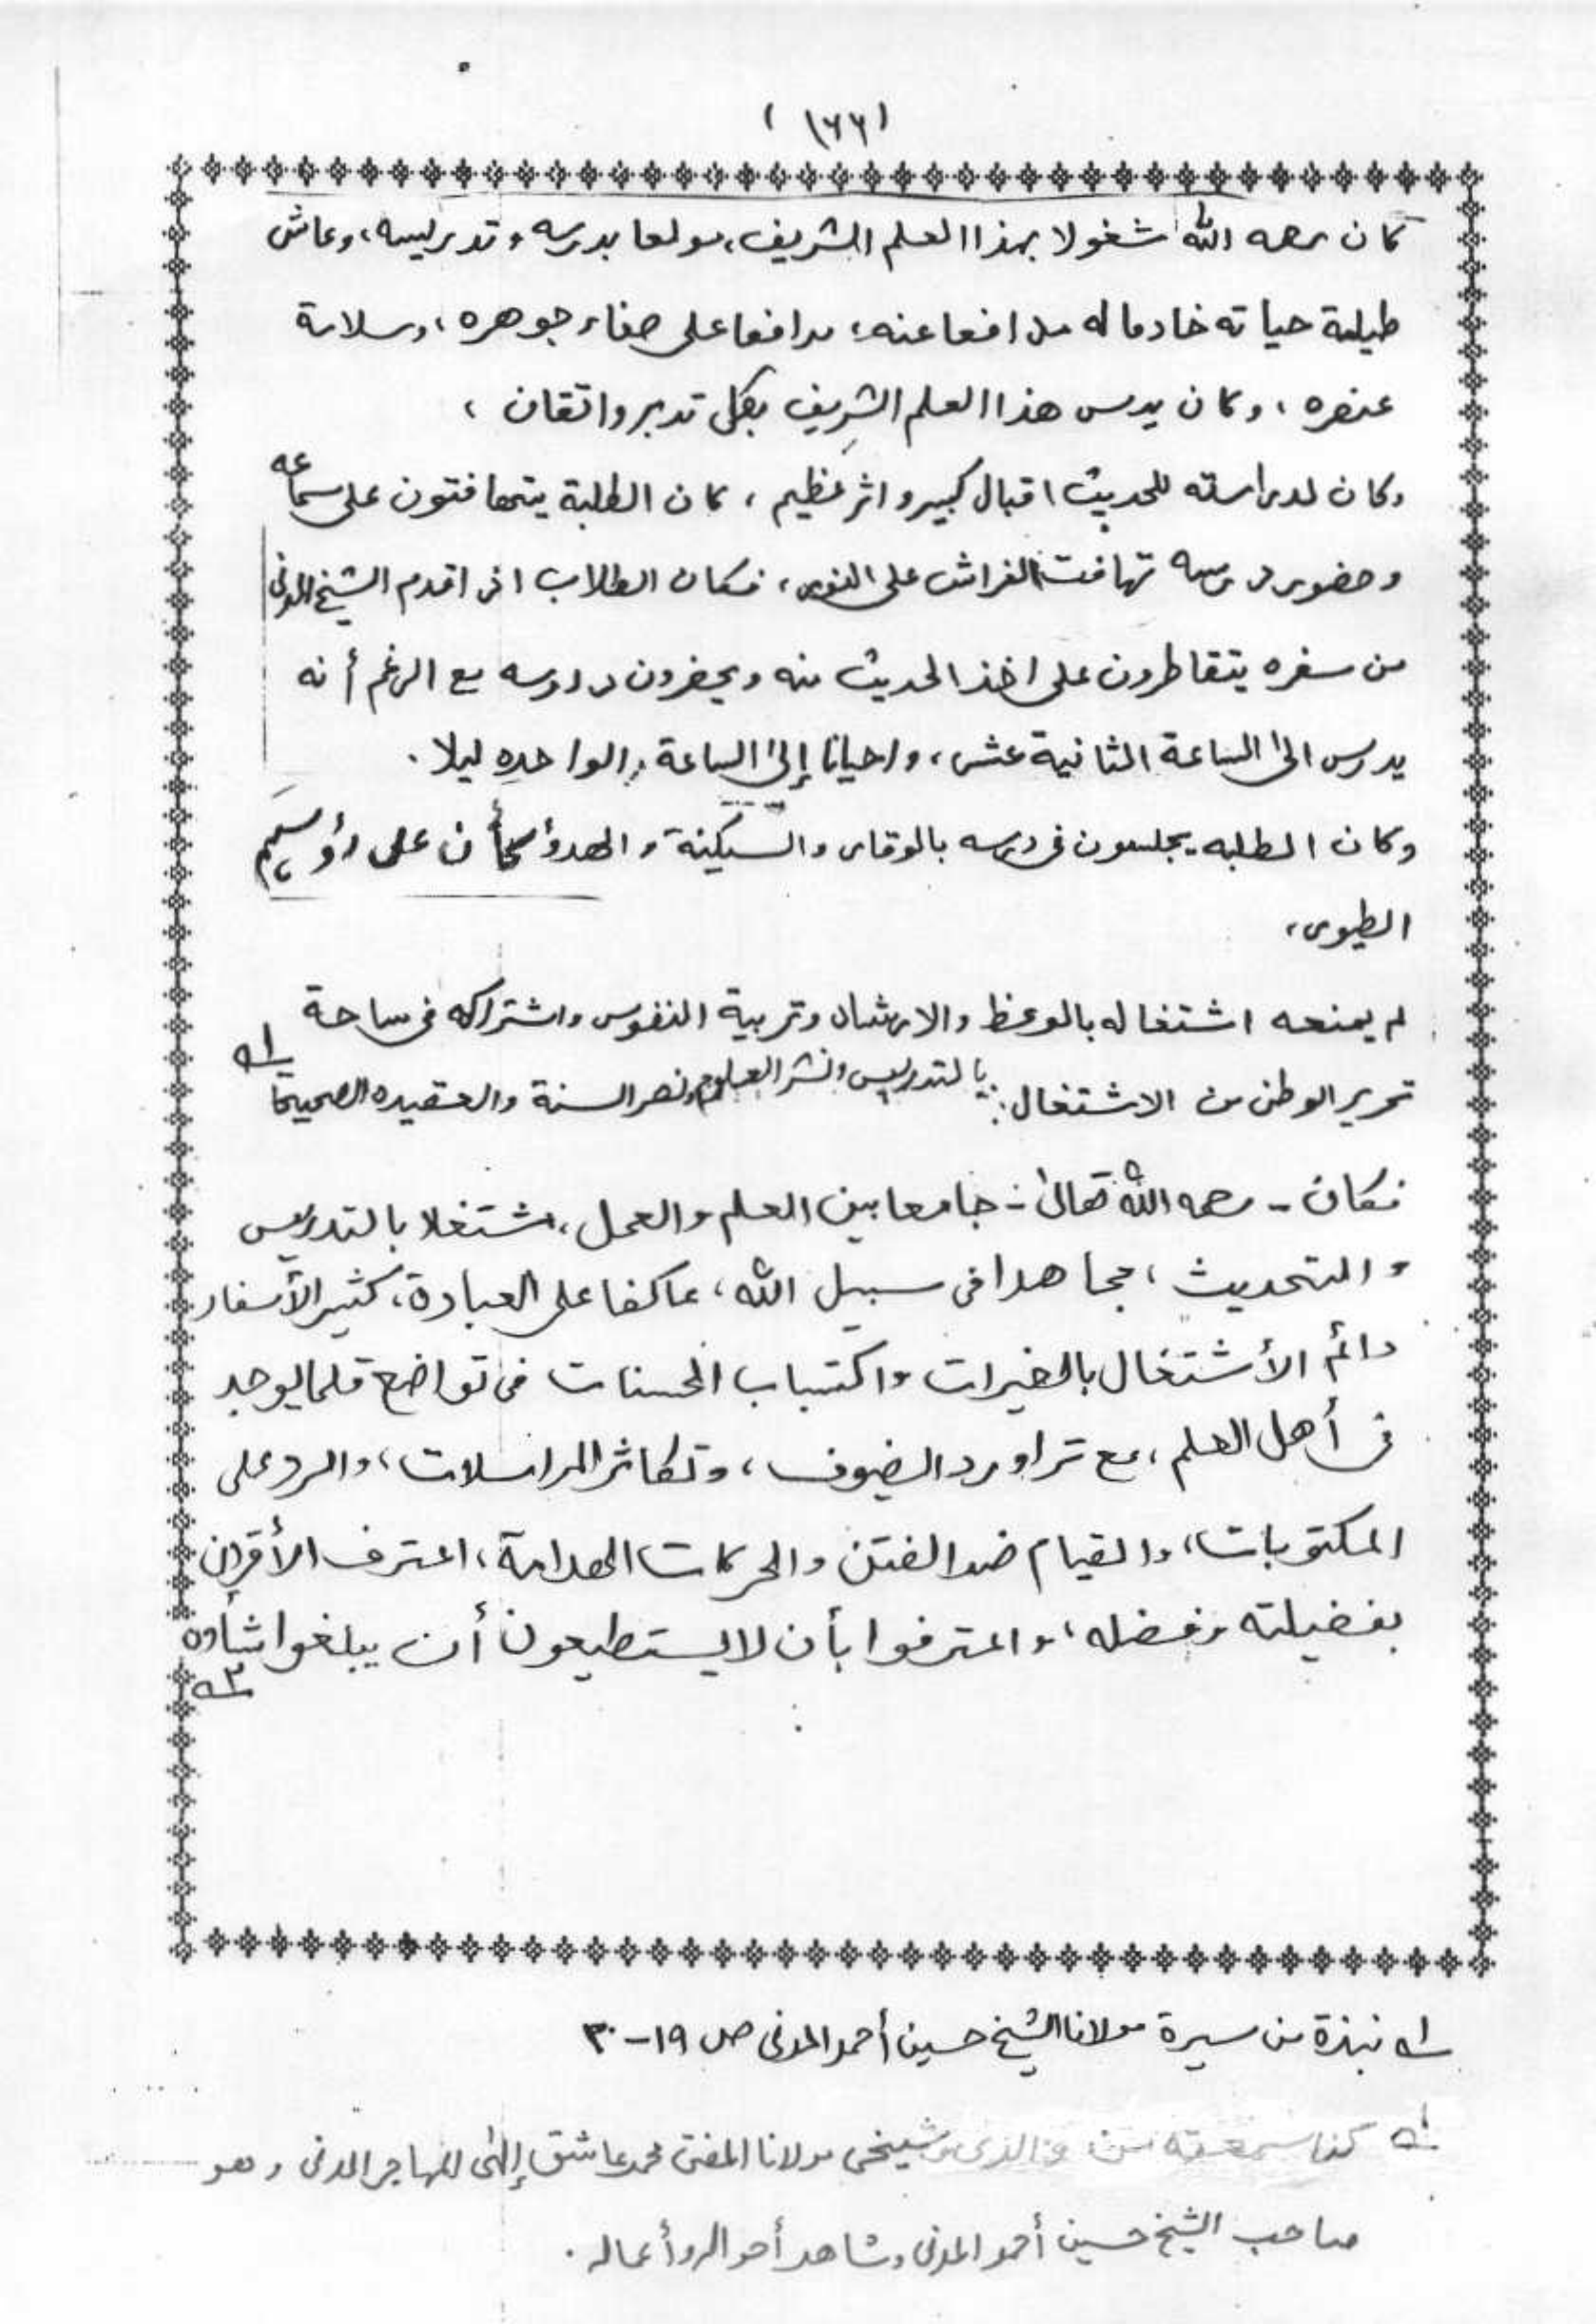 (١٦٦)
كان رحمه الله شغولا بهذا العلم الشريف، مولعا بدرسه وتدريسه، وعاش
طيلة حياته خادما له مدافعا عنه، مدافعا على صفاء جوهره، وسلامة
عنصره، وكان يدرس هذا العلم الشريف بكل تدبر واتقان،
وكان لدراسته للحديث اقبال كبير واثر عظيم، كان الطلبة يتهافتون على سماعه
وحضور درسه تهافت الفراش على النور، فكان الطلاب اذا قدم الشيخ المدنى
من سفره يتقاطرون على اخذ الحديث منه ويحضرون دروسه مع الرغم أنه
يدرس الى الساعة الثانية عشر، واحيانا إلى الساعة الواحده ليلا.
وكان الطلبه يجلسون فى درسه بالوقار والسكينة والهدؤ كأن على رؤسهم
الطيور،
لم يمنعه اشتغاله بالوعظ والارشاد وتربية النفوس واشتراكه فى ساحة
تحرير الوطن من الاشتغال بالتدريس ونشر العلوم ونصر السنة والعقيده الصحيحة ١ـه
فكان - رحمه الله تعالى - جامعا بين العلم والعمل، مشتغلا بالتدريس
والتحديث، مجاهدا فى سبيل الله، عاكفا على العبادة، كثير الأسفار
دائم الأشتغال بالخيرات واكتساب الحسنات فى تواضع قلما يوجد
فى أهل العلم، مع تراورد الضيوف، وتكاثر المراسلات، والرد على
المكتوبات، والقيام ضد الفتن والحركات الهدامة، اعترف الأقران
بفضيلته وفضله، واعترفوا بأن لا يستطيعون أن يبلغوا شأوه ٢ـه
١ـه نبذة من سيرة مولانا الشيخ حسين أحمد المدنى ص ١٩-٣٠
كذا سمعته من والدى وشيخى مولانا المفتى محمد عاشق إلهى المهاجر المدنى وهو
صاحب الشيخ حسين أحمد المدنى وشاهد أحواله وأعماله.